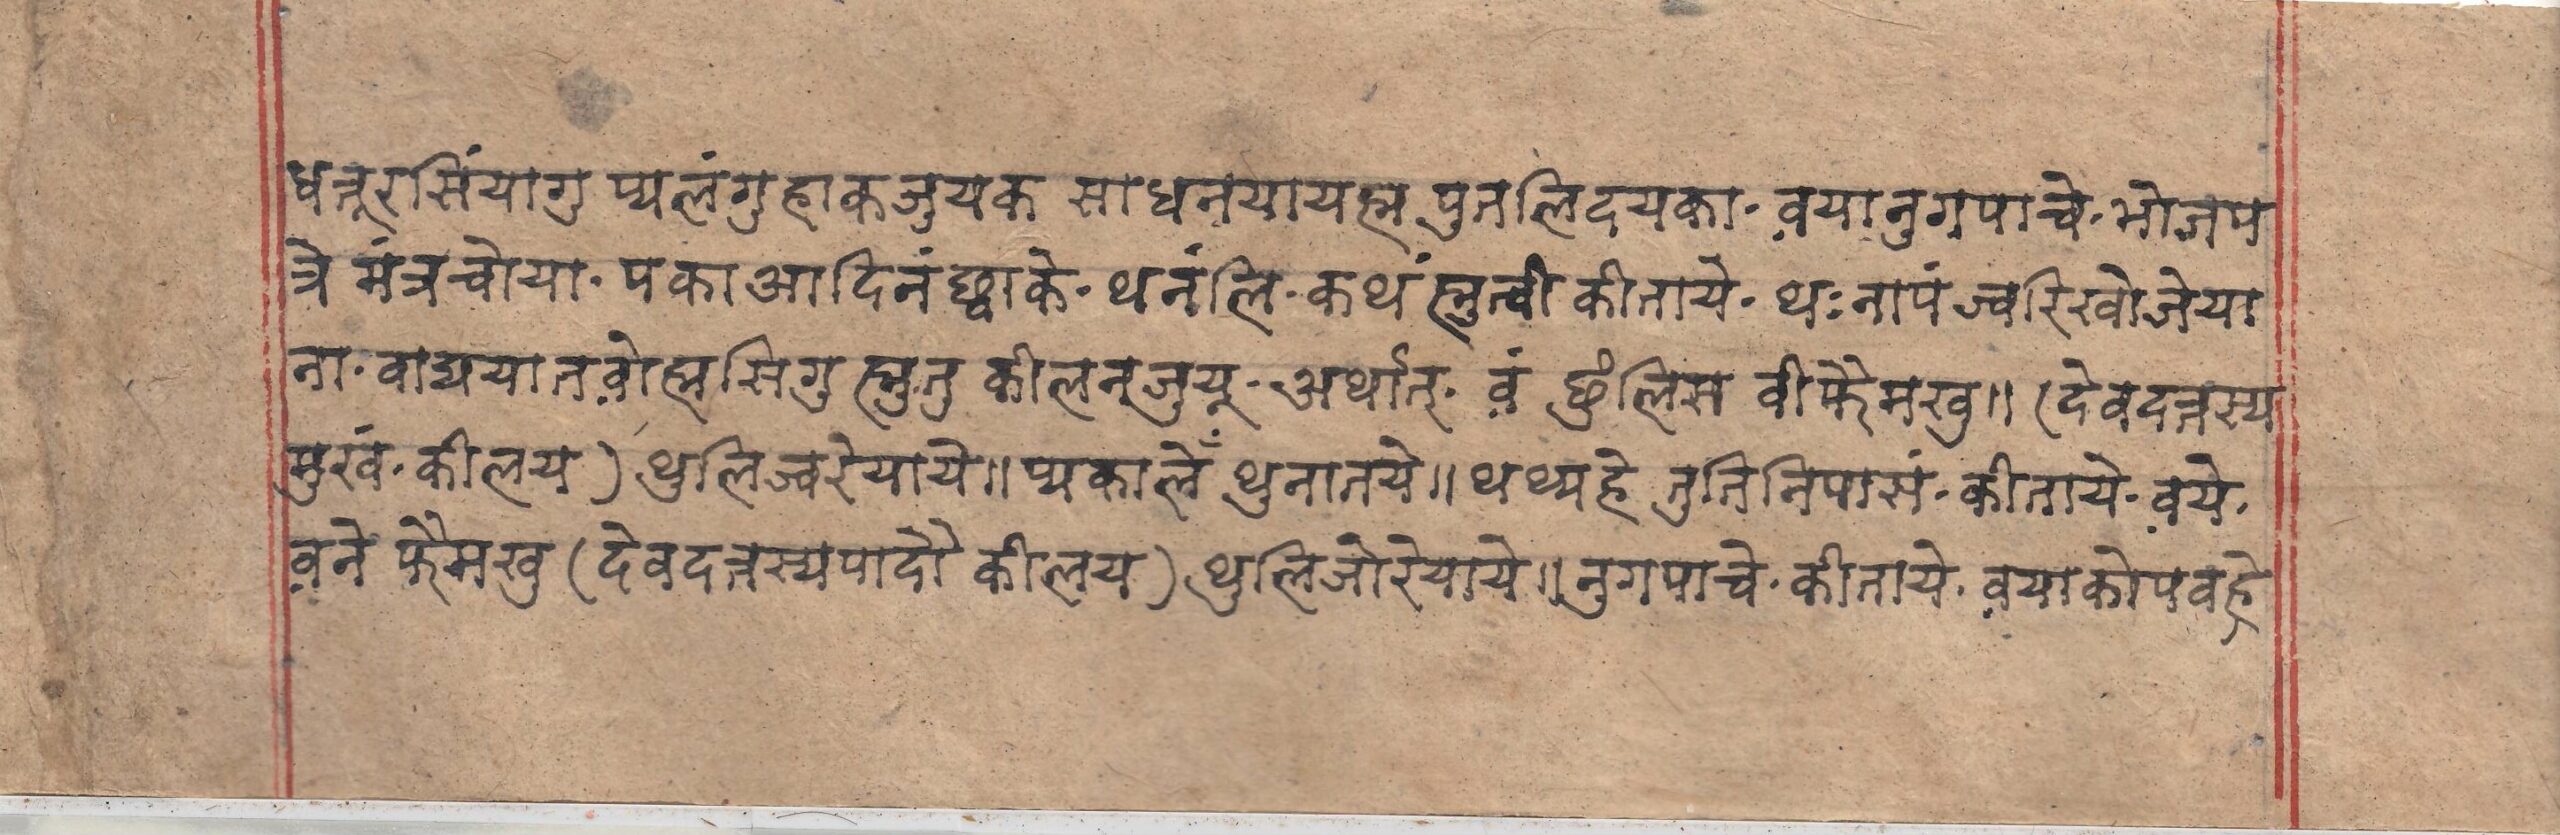 धत्तूरसिंयागु प्यलंगु हाकजुयक साधनयायह्म पुतलिदयका॰ व़यानुगपाचे॰ भोजप
त्रे मंत्रचोया॰ पकाआदिनं छ्वाके॰ थनंलि॰ कथं ह्नुत्वी कीताये॰ थःनापं ज्वरिखोजेया
ना॰ वाद्ययातव़ोह्मसिगु ह्नुतु कीलनजुयू॰ अर्थात्॰ व़ं छुंलिस वीफैमखु॥ (देवदत्तस्य
मुखं॰ कीलय) थुलिज्वरेयाये॥ प्यकालेँ थुनातये॥ थथ्यहे तुतिनिपासं॰ कीताये॰ व़ये॰
व़ने फैमखु (देवदत्तस्यपादौ कीलय) थुलिजोरेयाये॥ नुगपाचे॰ कीताये॰ व़याकोपवहे